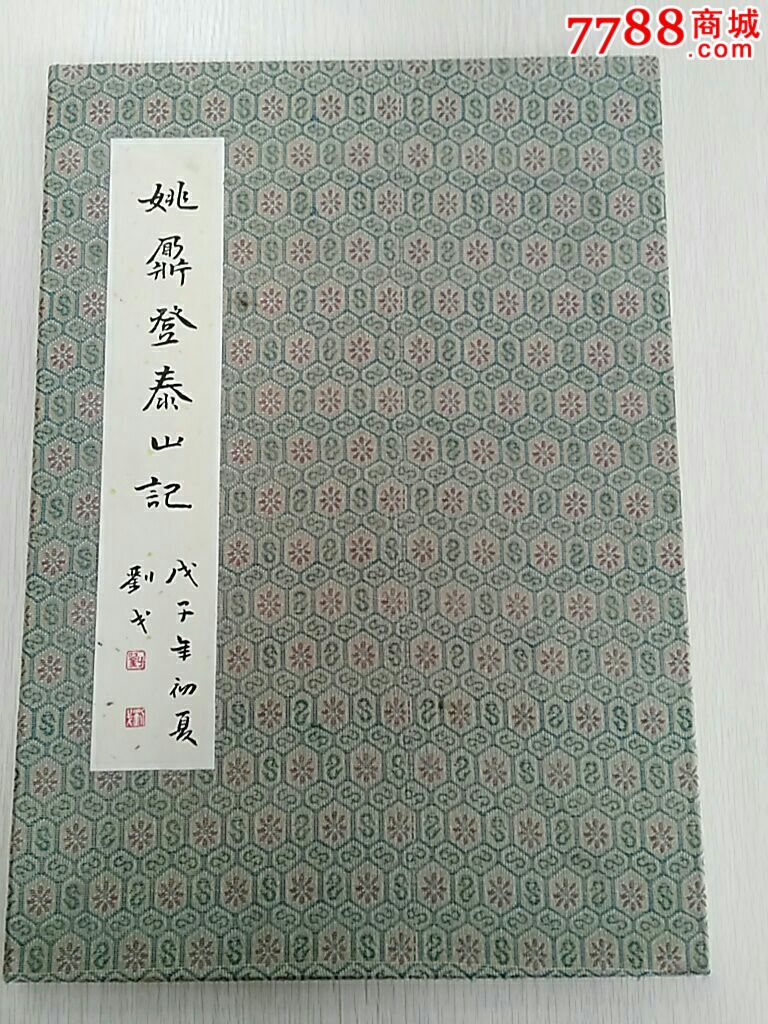 7788商城
.com
姚鼐登泰山記
戊子年初夏
劉戈